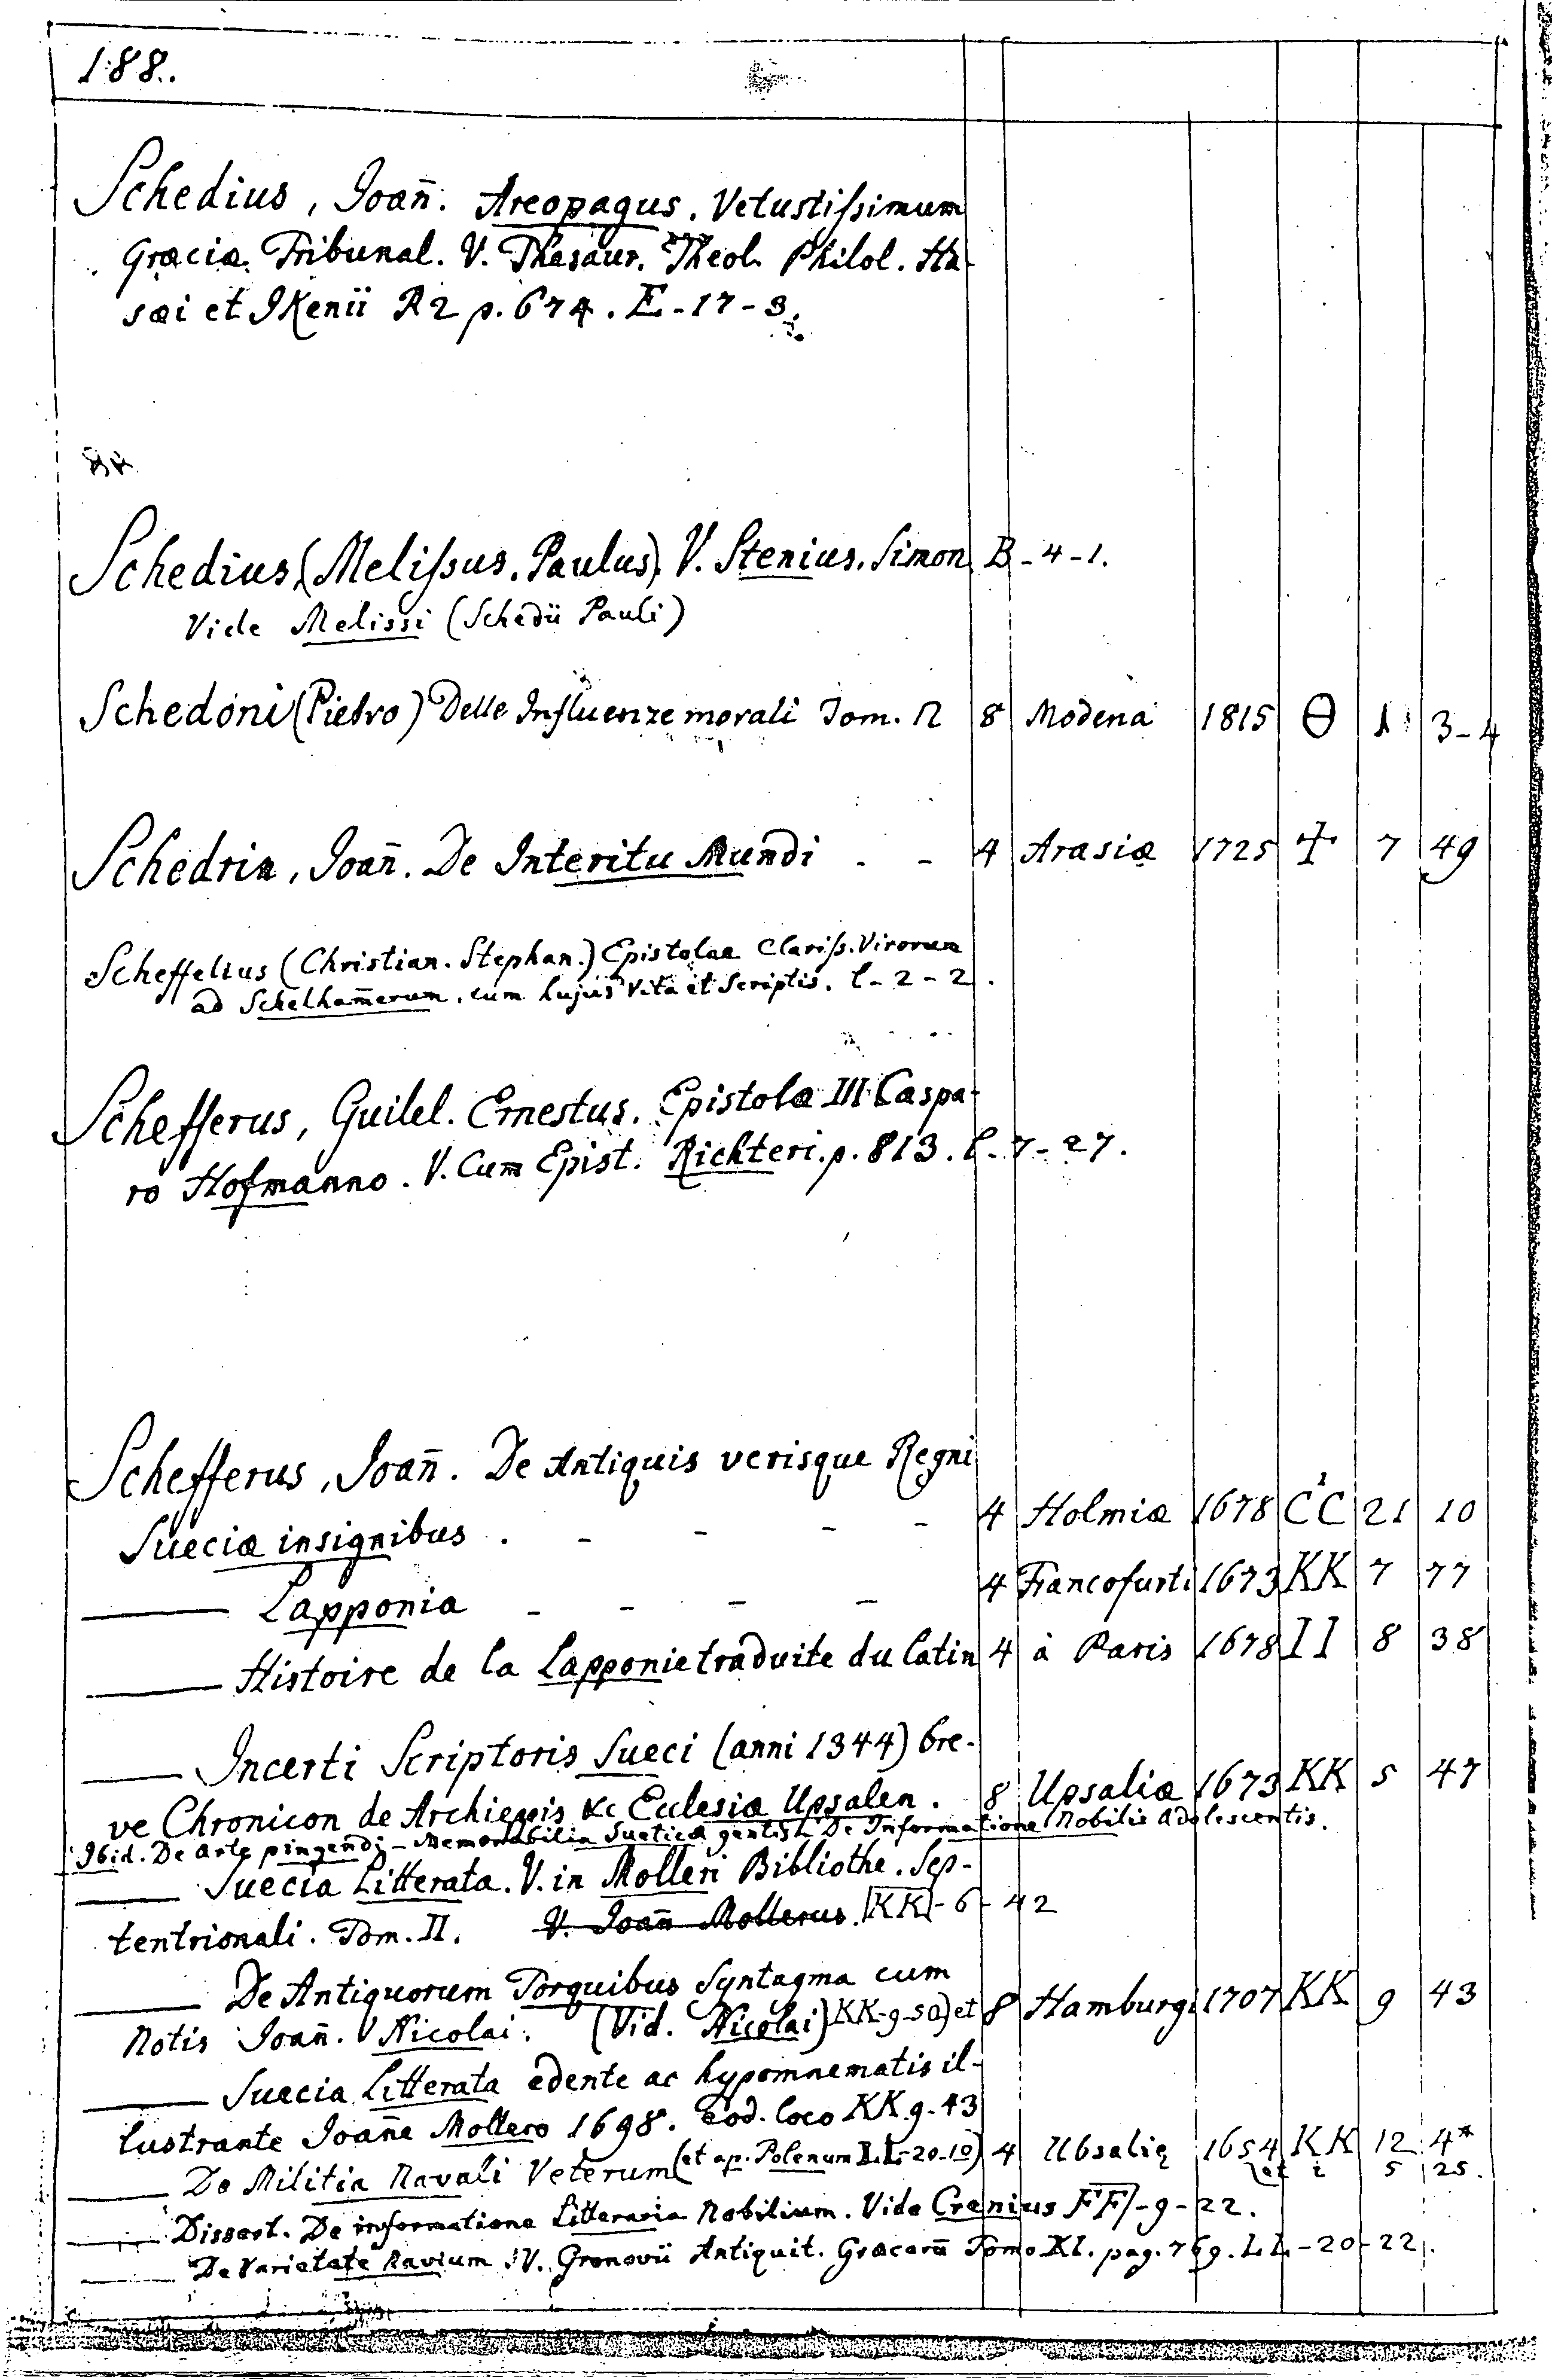 188.
Schedius, Joan̄. Areopagus. Vetustissimum
Græciæ Tribunal. V. Thesaur. Theol. Philol. Ha-
sæi et IKenii R 2 p. 674. E - 17 - 3.
Schedius (Melissus. Paulus), V. Stenius. Simon B - 4 - 1.
Vide Melissi (Schedii Pauli)
Schedoni (Pietro) Delle Influenze morali Tom. 8 Modena 1815 Θ 1 3-4
Schedrin, Joan̄. De Interitu Mundi - - 4 Arasiæ 1725 7 49
Scheffelius (Christian. Stephan.) Epistolae Clariss. Virorum
ad Schelham̄erum, cum hujus Vita et Scriptis. l - 2 - 2.
Schefferus, Guilel. Ernestus. Epistolæ III Caspa-
ro Hofmanno. V. Cum Epist. Richteri. p. 813. l - 7 - 27.
Schefferus, Joan̄. De Antiquis verisque Regni
Sueciæ insignibus . - - - - 4 Holmiæ 1678 CC 1 21 10
—— Lapponia - - - - 4 Francofurti 1673 KK 7 77
—— Histoire de la Lapponie traduite du latin 4 à Paris 1678 II 8 38
—— Incerti Scriptoris Sueci (anni 1344) bre-
ve Chronicon de Archiepis &c Eclesiæ Upsalen. 8 Upsaliæ 1673 KK 5 47
Ibid. De Arte pingendi - Memorabilia Sueticæ gentis De Informatione Nobilis Adolescentis.
—— Suecia Litterata. V. in Molleri Bibliothe. Sep-
tentrionali. Tom. II. V. Joan̄ Mollerus. KK - 6 - 42
—— De Antiquorum Torquibus Syntagma cum
Notis Joan̄. Nicolai. (Vid. Nicolai) KK-9-50) et 8 Hamburgi 1707 KK 9 43
—— Suecia Litterata edente ac hypomnematis il-
lustrante Joan̄e Mollero 1698. eod. loco KK. 9 - 43
—— De Militia Navali Veterum (et ap. Polenum LL-20-10) 4 Ubsalię 1654 KK 12 4*
et i 5 25.
—— Dissert. De informatione Litteraria Nobilium. Vide Crenius FF - 9 - 22.
—— De Varietate Navium V. Gronovii Antiquit. Græcarū Tomo XI. pag. 769. LL - 20 - 22.